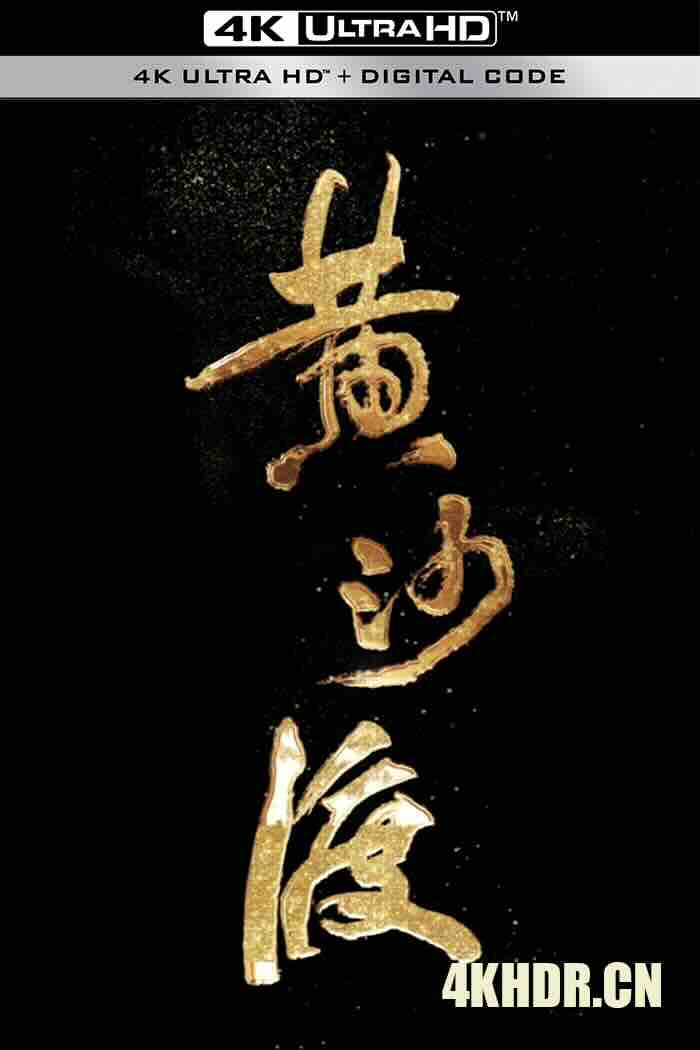 4K ULTRA HD™
4K ULTRA HD™ + DIGITAL CODE
黄
沙
渡
4KHDR.CN